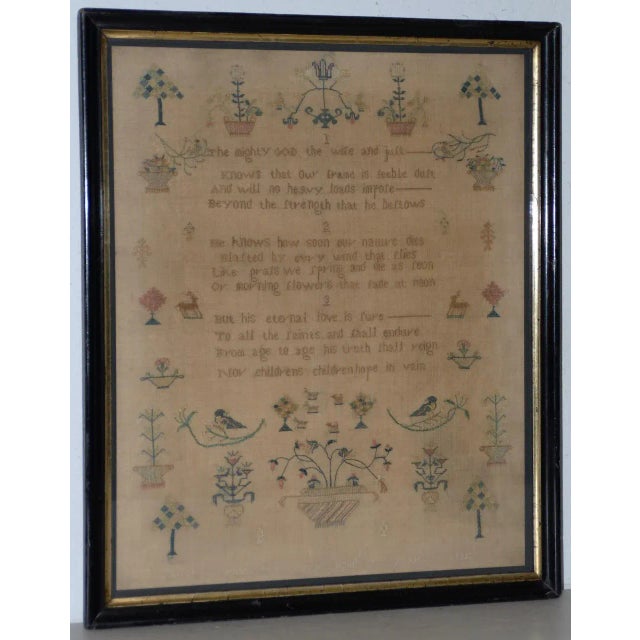 1
The mighty GOD the wise and just
Knows that Our frame is feeble dust
And will no heavy loads impose
Beyond the ſtrength that he beſtows
2
He Knows how soon our nature dies
Blaſted by every wind that flies
Like graſs we ſpring and die as ſoon
Or morning flowers that fade at noon
3
But his eternal love is ſure
To all the ſaints and ſhall endure
From age to age his truth ſhall reign
Nor childrens children hope in vain